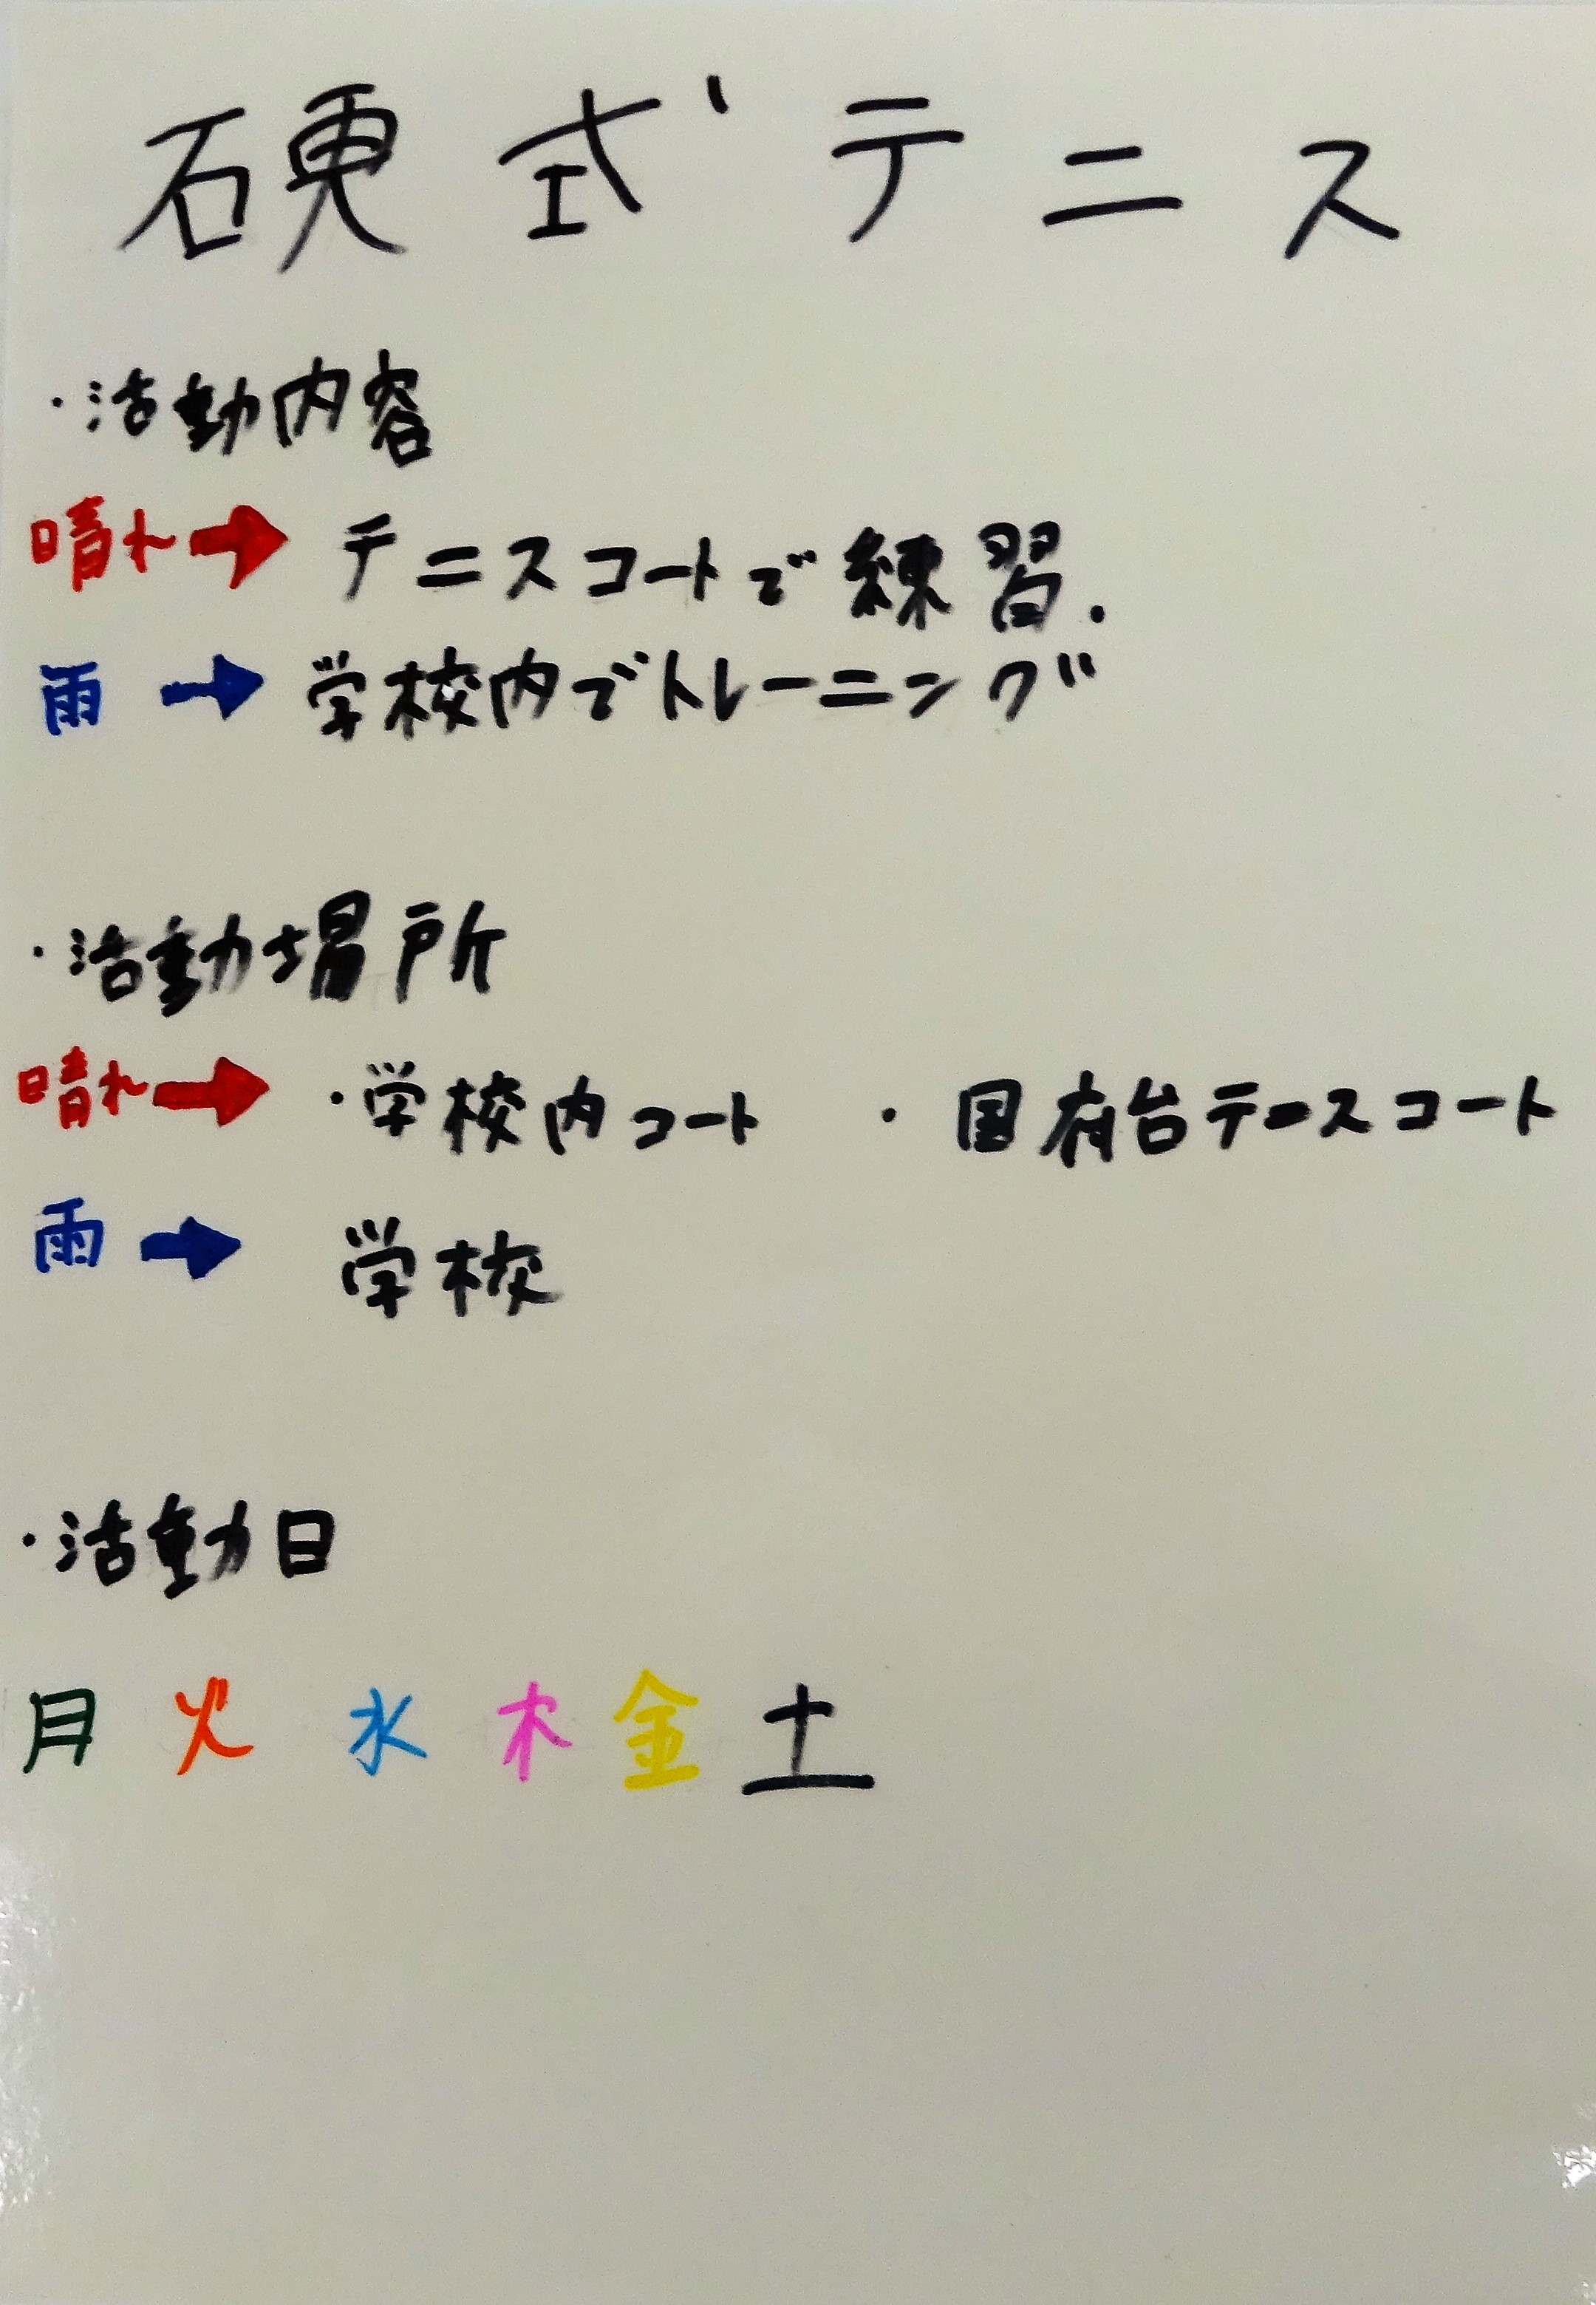 硬式テニス
・活動内容
晴れ→テニスコートで練習.
雨→学校内でトレーニング
・活動場所
晴れ→・学校内コート ・国府台テニスコート
雨→学校
・活動日
月火水木金土